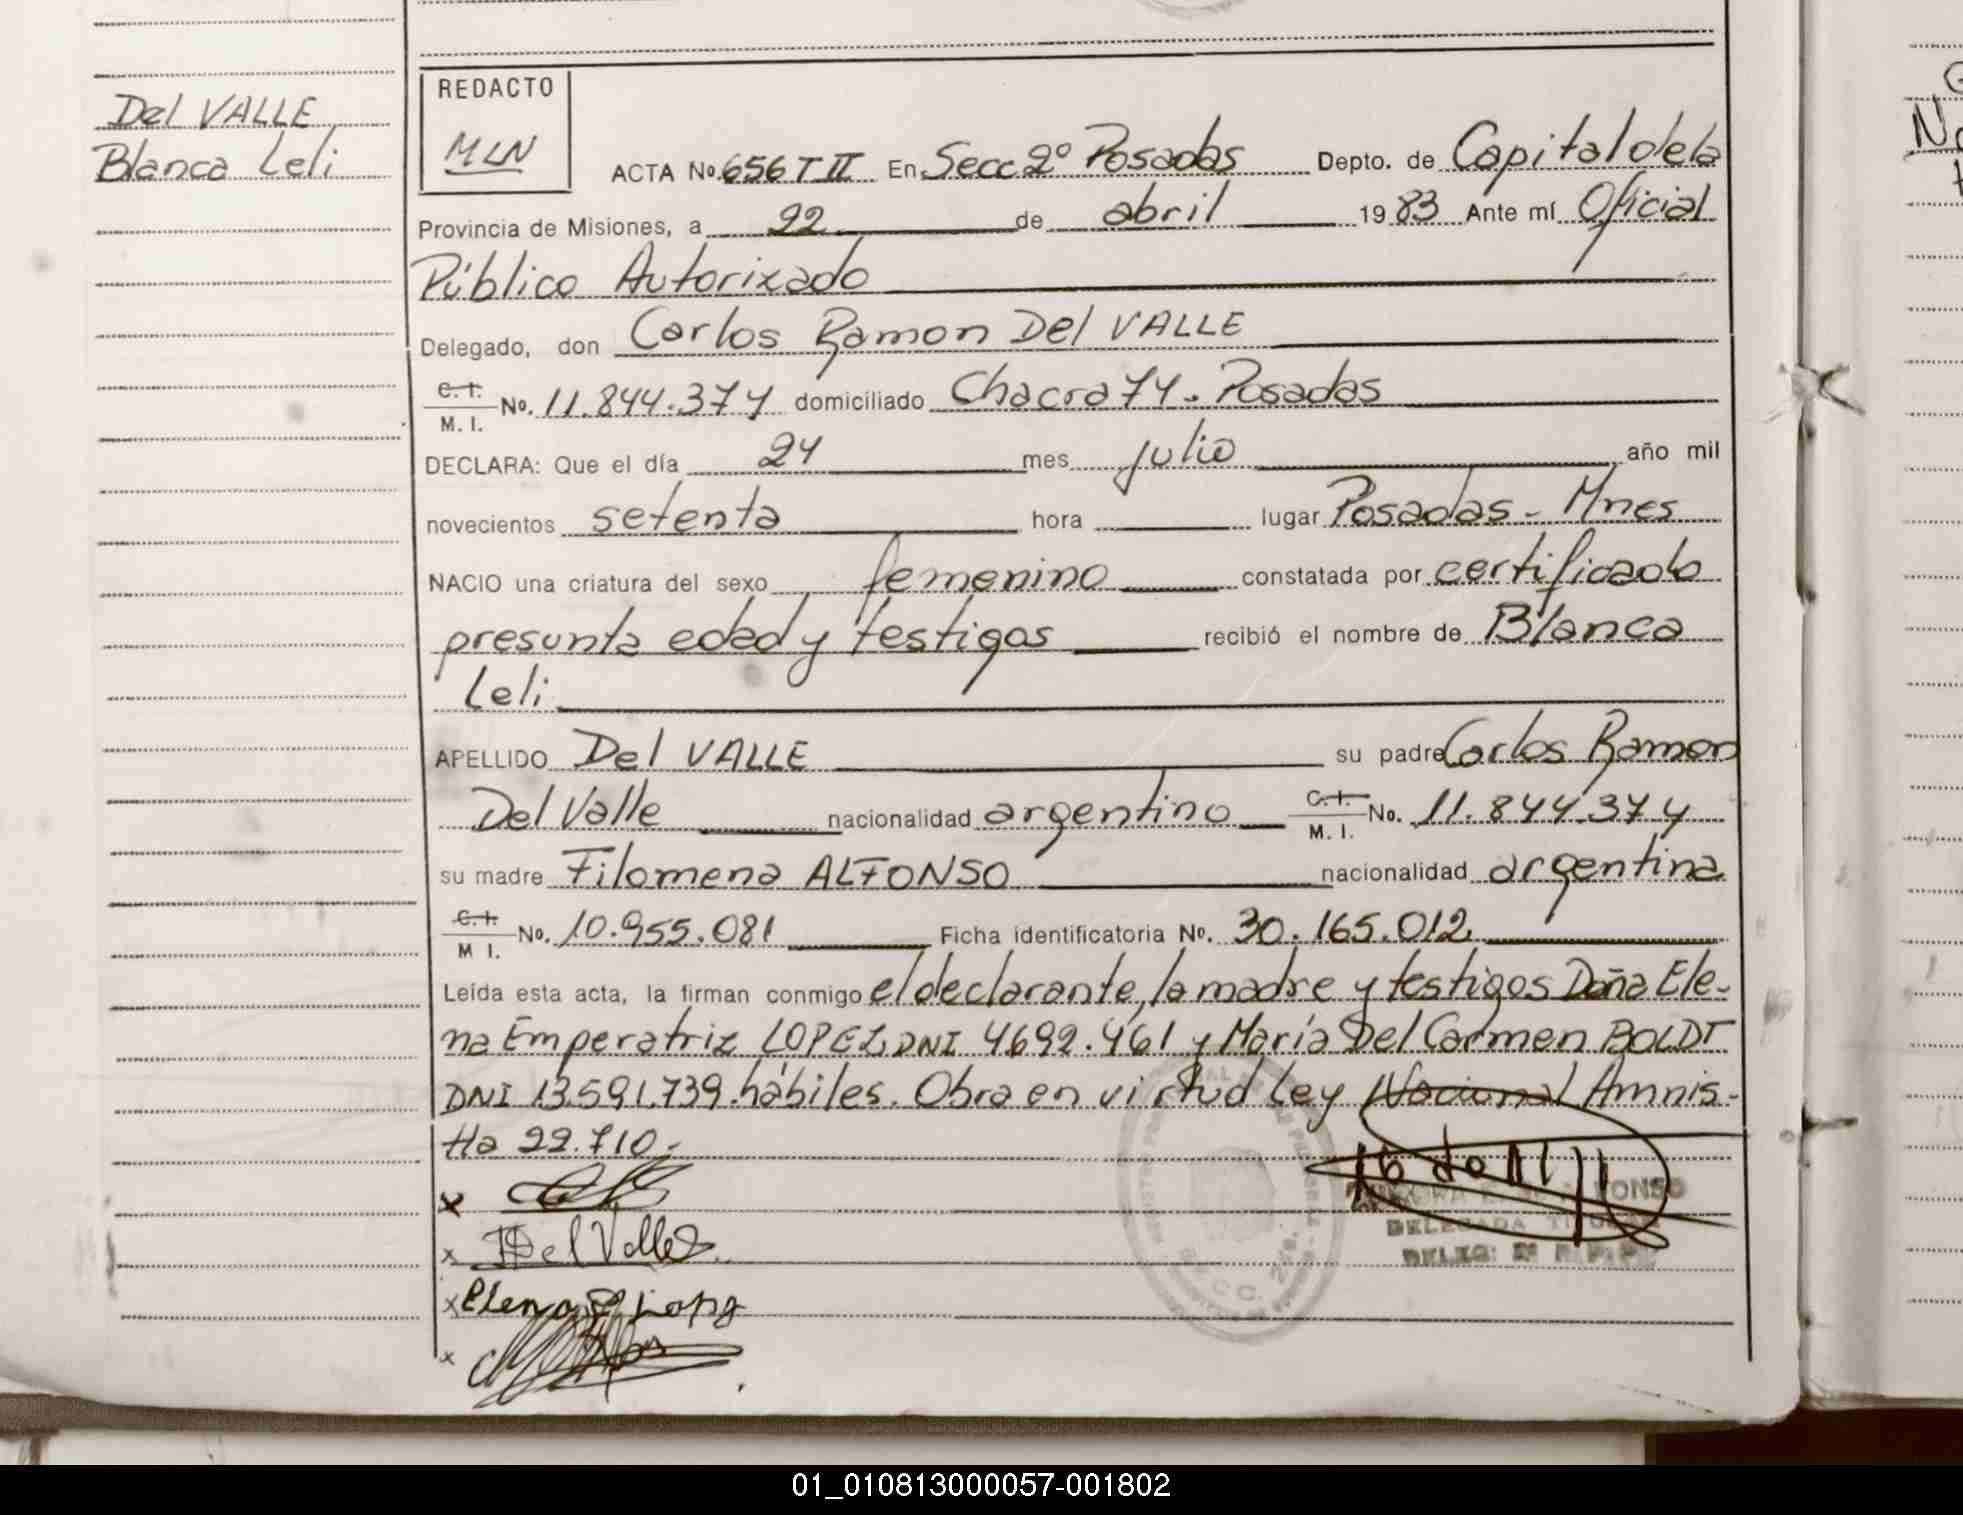 Del VALLE
Blanca Leli
REDACTO
MLN
ACTA No. 656 T II En Secc 2º Posadas Depto. de Capital de la
Provincia de Misiones, a 22 de abril 1983 Ante mí Oficial
Público Autorizado
Delegado, don Carlos Ramon Del VALLE
C.I.
M. I. No. 11.844.374 domiciliado Chacra 74. Posadas
DECLARA: Que el día 24 mes julio año mil
novecientos setenta hora lugar Posadas - Mnes
NACIO una criatura del sexo femenino constatada por certificado
presunta edad y testigos recibió el nombre de Blanca
Leli
APELLIDO Del VALLE su padre Carlos Ramon
Del Valle nacionalidad argentino C.I. M. I. No. 11.844.374
su madre Filomena ALFONSO nacionalidad argentina
C.I.
M I. No. 10.955.081 Ficha identificatoria No. 30.165.012
Leída esta acta, la firman conmigo el declarante, la madre y testigos Doña Ele-
na Emperatriz LOPEZ DNI 4692.461 y María Del Carmen BOLDT
DNI 13.591.739 hábiles. Obra en virtud Ley Nacional Amnis-
tia 22.710.-
x
x Del Valle
x Elena E Lopez
x
DELEGADA TITULAR
01_010813000057-001802